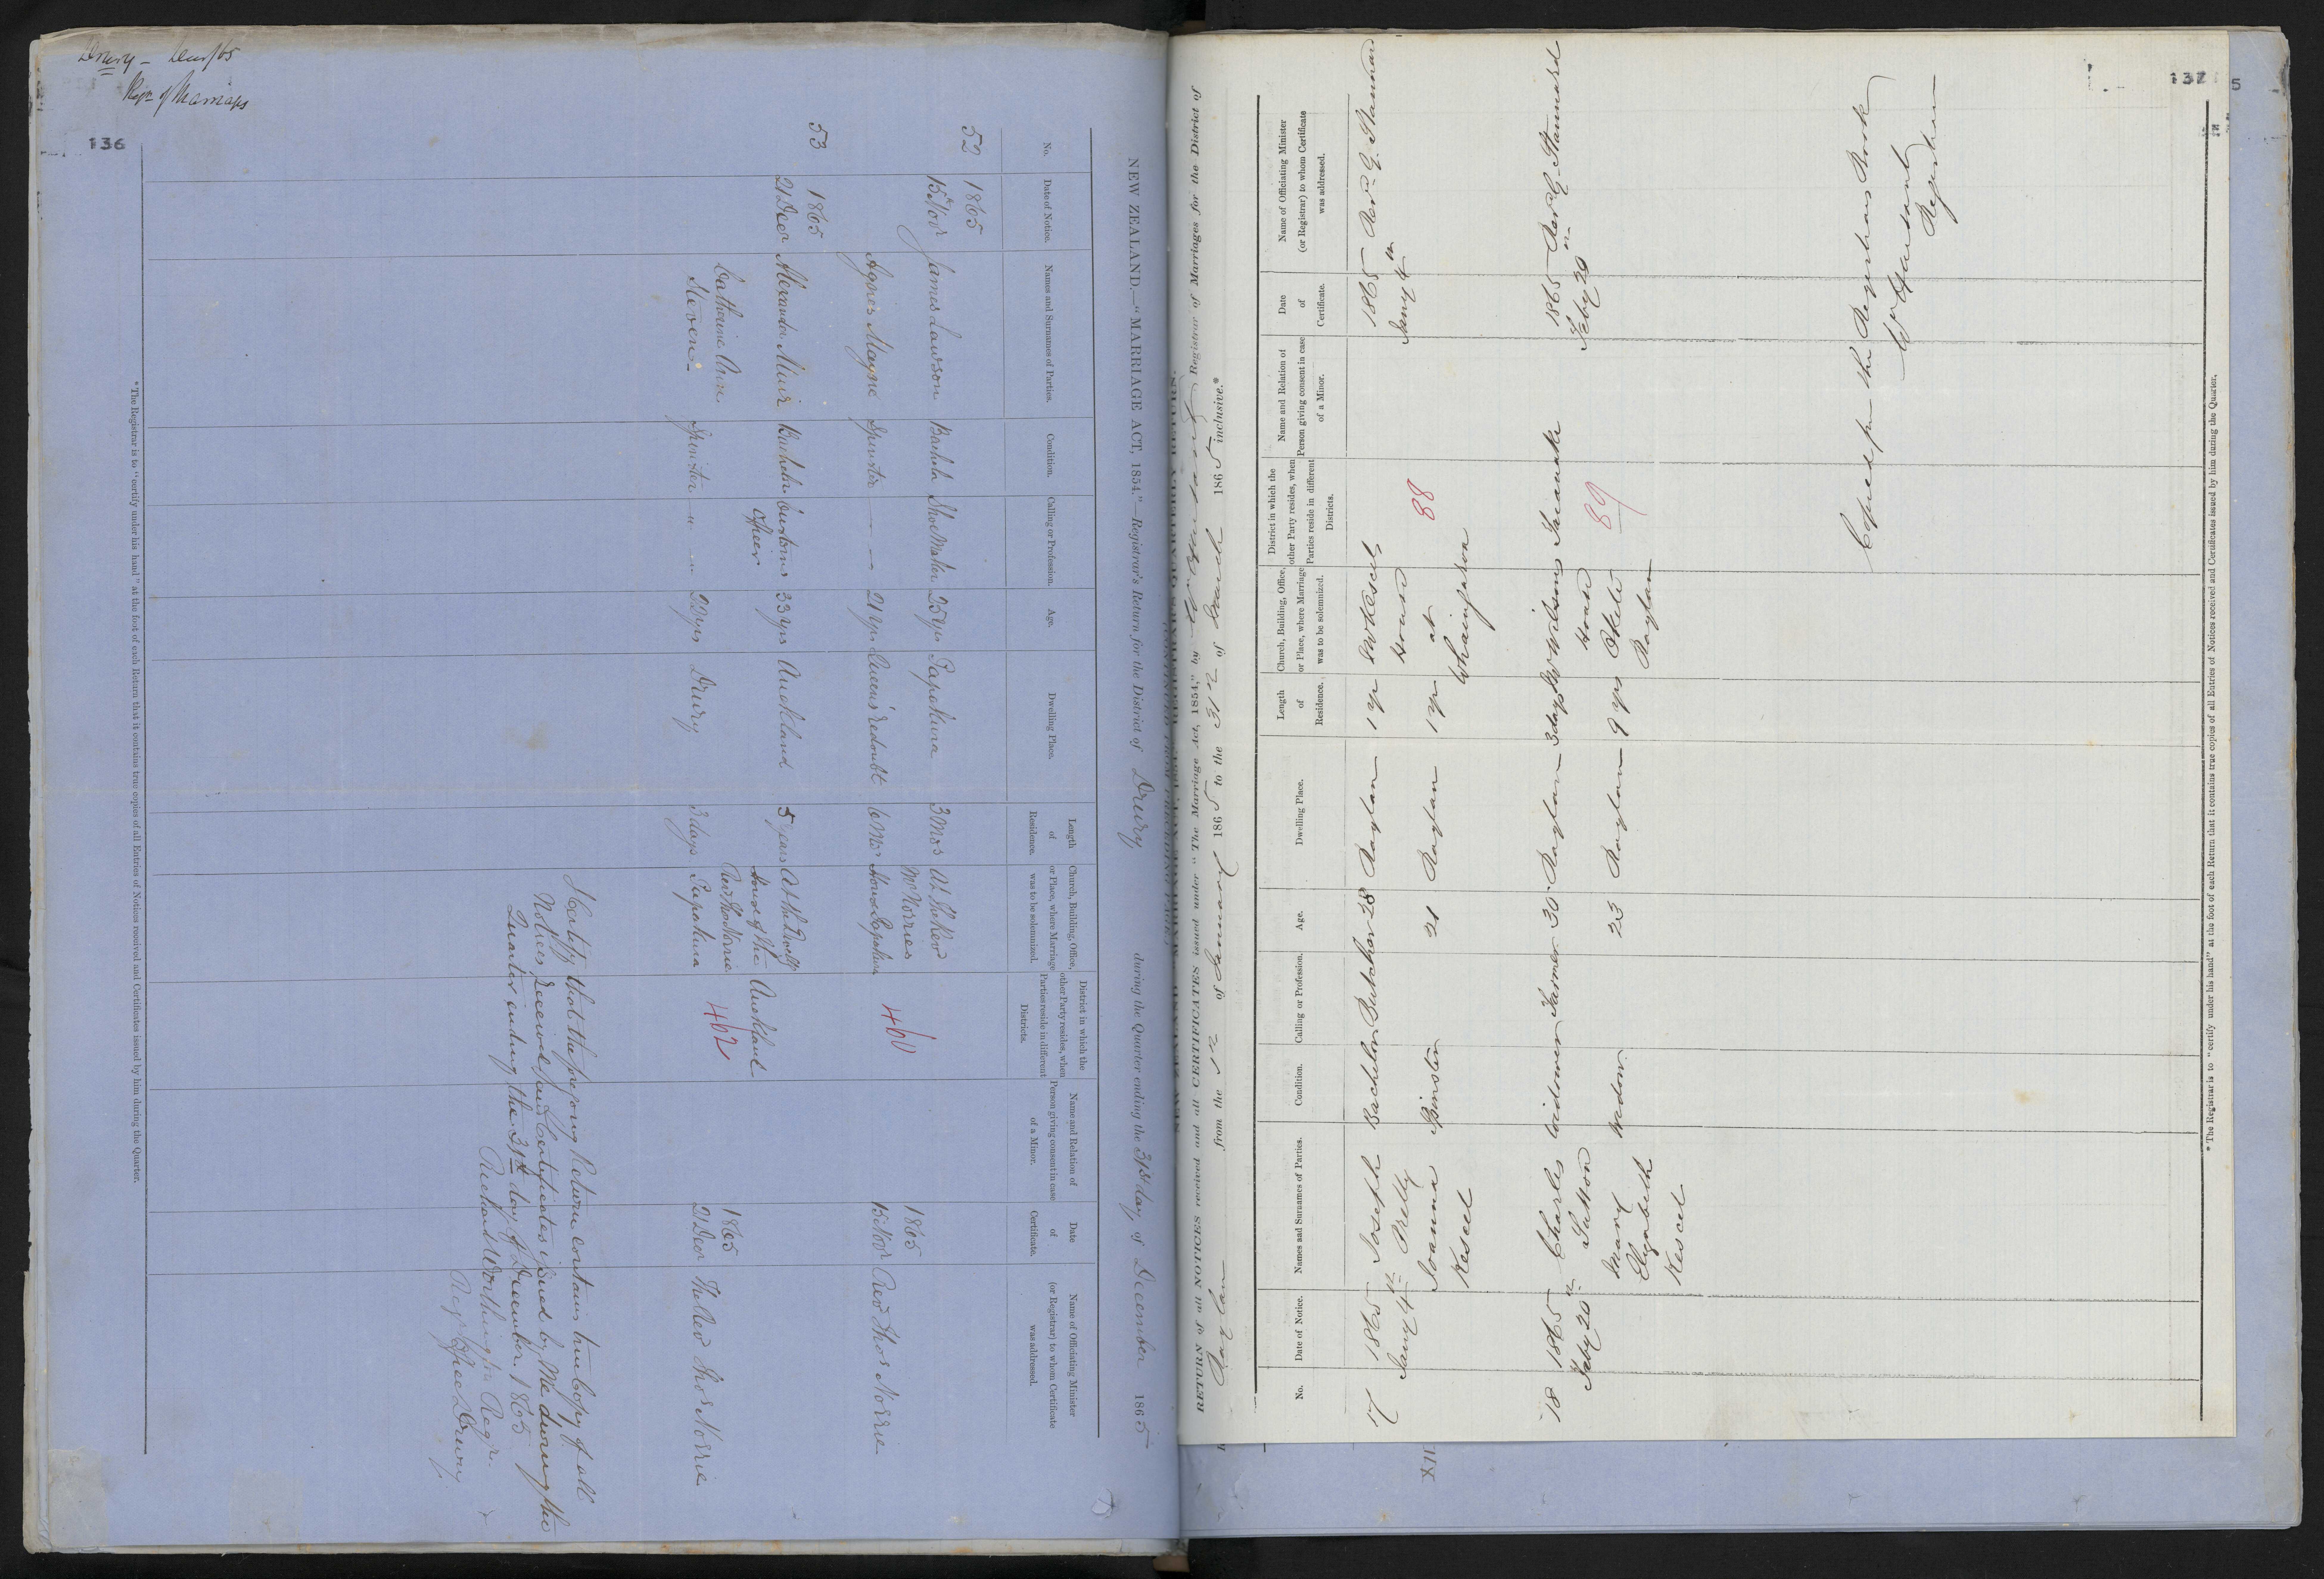 Drury - Decr/65
Regr of Marriages
136
NEW ZEALAND.—"MARRIAGE ACT, 1854."—Registrar's Return for the District of Drury during the Quarter ending the 31st day of December 1865
No. Date of Notice. Names and Surnames of Parties. Condition. Calling or Profession. Age. Dwelling Place. Length of Residence. Church, Building, Office, or Place, where Marriage was to be solemnized. District in which the other Party resides, when Parties reside in different Districts. Name and Relation of Person giving consent in case of a Minor. Date of Certificate. Name of Officiating Minister (or Registrar) to whom Certificate was addressed.
52 1865
15th Novr James Lawson Bachelor Shoe Maker 25 yrs Papakura 3 Mos At the Revd
Mr Norries 1865
Agnes Mayne Spinster 21 yrs Queens redoubt 6 Mos House Papakura 460 15 Novr Revd Thos Norrie
53 1865
21 Decr Alexander Muir Bachelor Customs 33 yrs Auckland 5 years At the Dwellg
officer House of the Auckland
Catherine Ann Revd Thos Norrie 1865
Steven Spinster 22 yrs Drury 3 days Papakura 462 21 Decr The Revd Thos Norrie
I Certify that the foregoing Return contains true Copy of all
Notices Received and Certificates issued by Me during the
Quarter ending the 31st day of December 1865
Richard Worthington Regr.
Regr Office Drury
*The Registrar is to "certify under his hand" at the foot of each Return that it contains true copies of all Entries of Notices received and Certificates issued by him during the Quarter.
137
5
RETURN of all NOTICES received and all CERTIFICATES issued under "The Marriage Act, 1854," by Registrar of Marriages for the District of
Raglan from the 1st of January 1865 to the 31st of March 1865 inclusive.*
No. Date of Notice. Names and Surnames of Parties. Condition. Calling or Profession. Age. Dwelling Place. Length of Residence. Church, Building, Office, or Place, where Marriage was to be solemnized. District in which the other Party resides, when Parties reside in different Districts. Name and Relation of Person giving consent in case of a Minor. Date of Certificate. Name of Officiating Minister (or Registrar) to whom Certificate was addressed.
17 1865 Joseph Bachelor Butcher 28 Raglan 1 yr 1865 Revd G. Stannard
Jany 4th Pretty House Jany 4th
Joanna Spinster 21 Raglan 1 yr at 88
Kescel Whaingaroa
18 1865 Charles Widower Farmer 30 Raglan 3 days Wilsons Taranaki 1865 Revd G. Stannard
Feby 20th Sutton House Feby 20th
Mary Widow 23 Raglan 9 yrs Okete 89
Elizabeth Raglan
Kescel
Copied from the Registrars Book
Registrar
*The Registrar is to "certify under his hand" at the foot of each Return that it contains true copies of all Entries of Notices received and Certificates issued by him during the Quarter.
XII